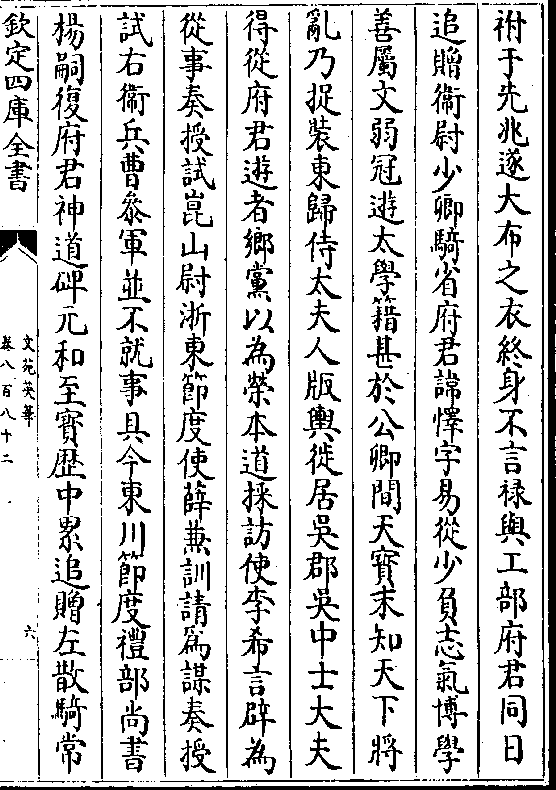 祔于先兆遂大布之衣終身不言禄與工部府君同日
追贈衞尉少卿騎省府君諱懌字易從少負志氣博學
善屬文弱冠遊太學籍甚於公卿間天寳末知天下將
亂乃捉装東歸侍太夫人版輿徙居吳郡吳中士大夫
得從府君遊者鄉黨以為榮本道採訪使李希言辟為
從事奏授試崑山尉浙東節度使薛兼訓請為謀奏授
試右衞兵曹叅軍並不就事具今東川節度禮部尚書
楊嗣復府君神道碑元和至寳歴中累追贈左散騎常
欽定四庫全書
文苑英華
卷八百八十二
六